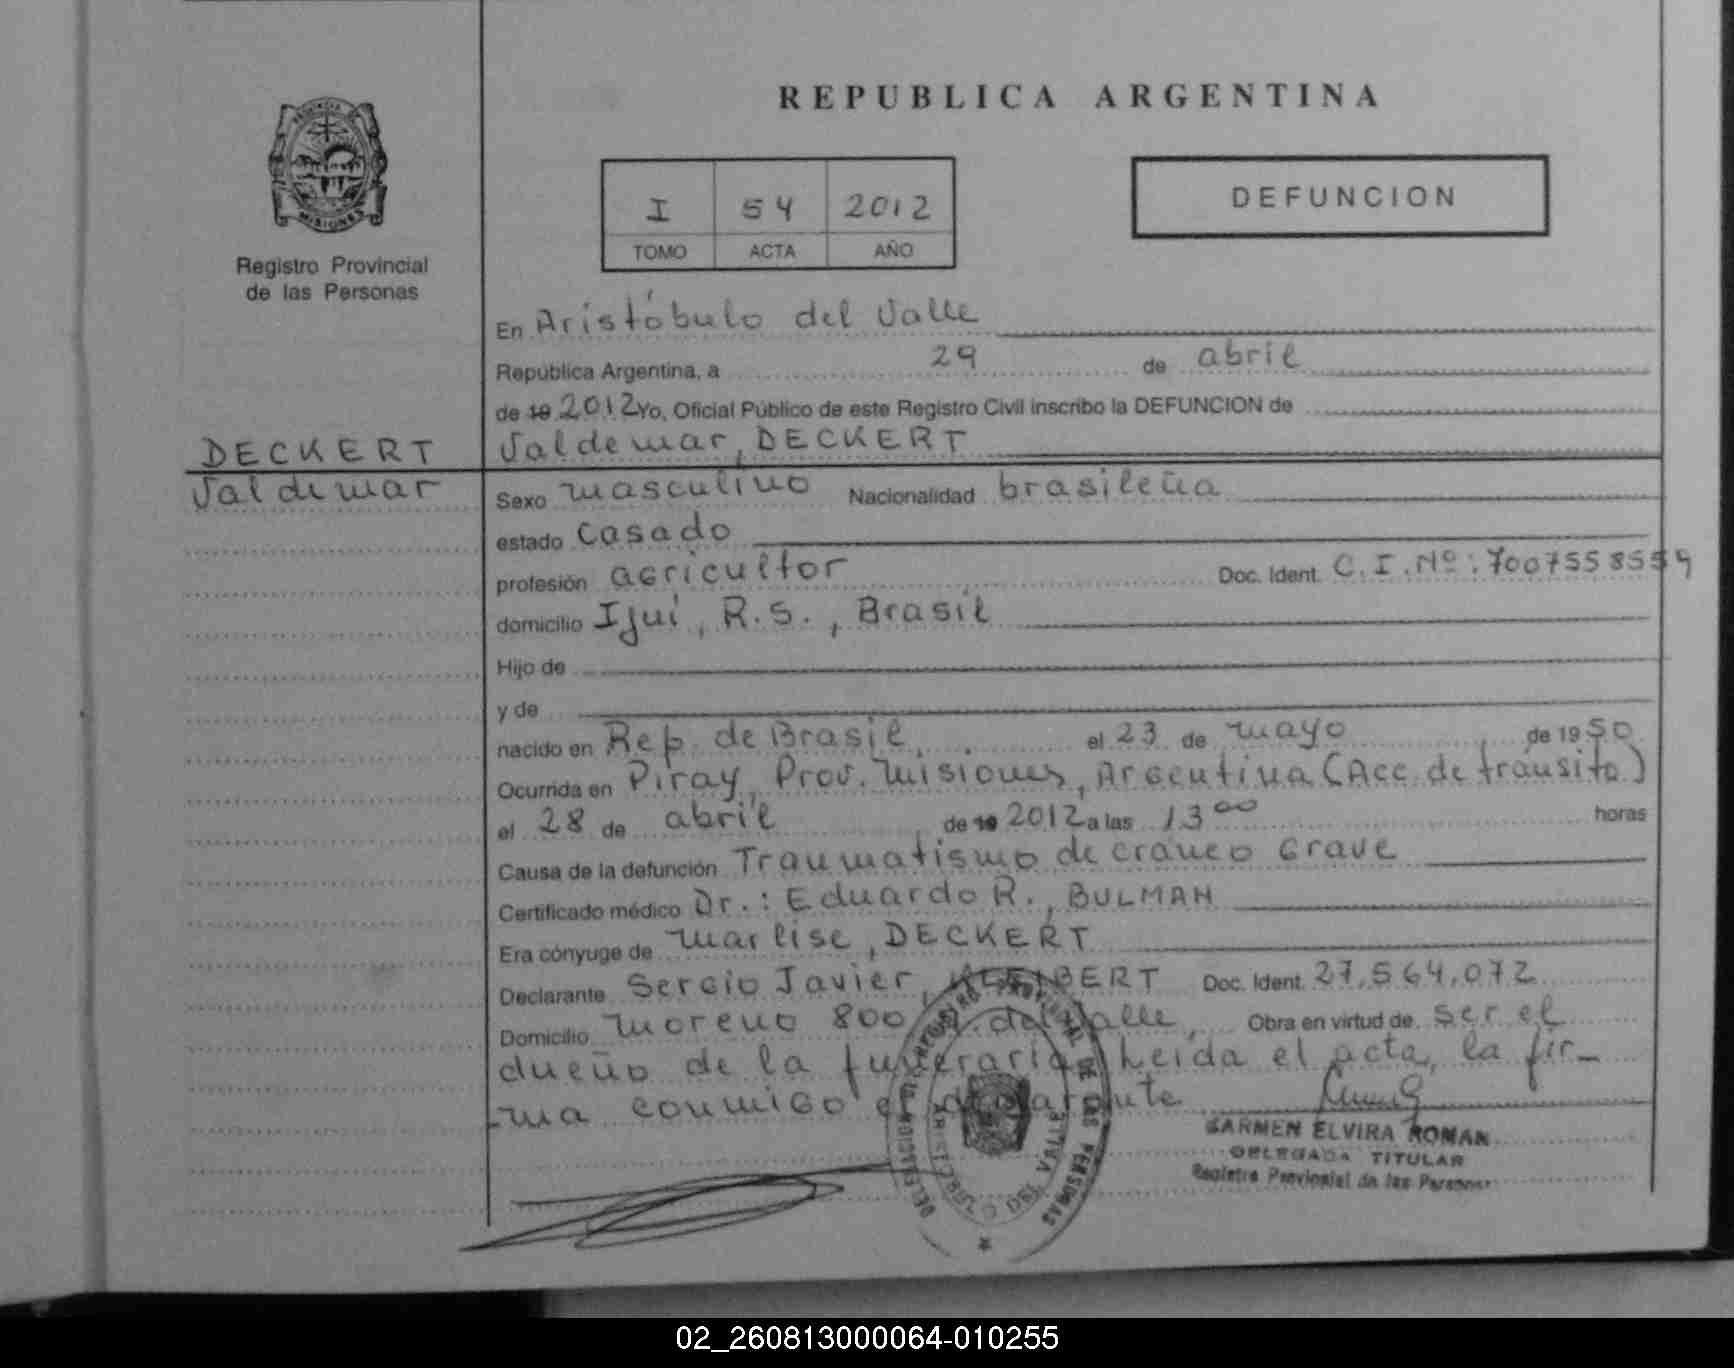 REPUBLICA ARGENTINA
PROVINCIA DE
MISIONES
Registro Provincial
de las Personas
I 54 2012
TOMO ACTA AÑO
DEFUNCION
DECKERT
Valdemar
En Aristóbulo del Valle
República Argentina, a 29 de abril
de 19 2012 Yo, Oficial Público de este Registro Civil inscribo la DEFUNCION de
Valdemar, DECKERT
Sexo masculino Nacionalidad brasileña
estado casado
profesión agricultor Doc. Ident. C.I.Nº: 7007558559
domicilio Ijuí, R.S., Brasil
Hijo de
y de
nacido en Rep. de Brasil, el 23 de mayo de 1950
Ocurrida en Piray, Prov. Misiones, Argentina (Acc. de tránsito)
el 28 de abril de 19 2012 a las 13 00 horas
Causa de la defunción Traumatismo de craneo grave
Certificado médico Dr.: Eduardo R., BULMAN
Era cónyuge de Marlise, DECKERT
Declarante Sergio Javier, KLEIBERT Doc. Ident. 27.564.072
Domicilio Moreno 800 A. del Valle, Obra en virtud de ser el
dueño de la funeraria Leída el acta, la fir-
-ma conmigo el declarante
DELEGACION REGISTRO PROVINCIAL DE LAS PERSONAS
ARISTOBULO DEL VALLE
CARMEN ELVIRA ROMAN
DELEGADA TITULAR
Registro Provincial de las Personas
02_260813000064-010255